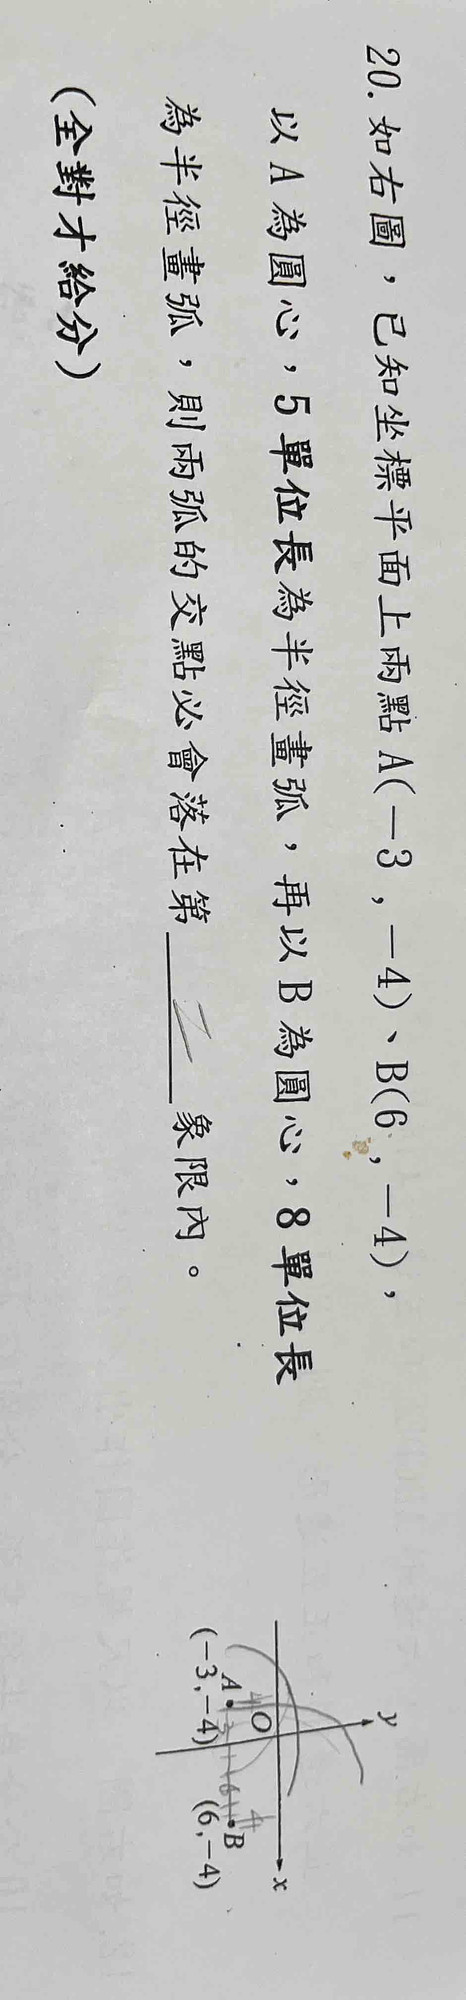 20. 如右圖，已知坐標平面上兩點 A(－3，－4)、B(6，－4)，
以 A 為圓心，5 單位長為半徑畫弧，再以 B 為圓心，8 單位長
為半徑畫弧，則兩弧的交點必會落在第 二 象限內。
(全對才給分)
y
O
x
A
(－3,－4)
B
(6,－4)